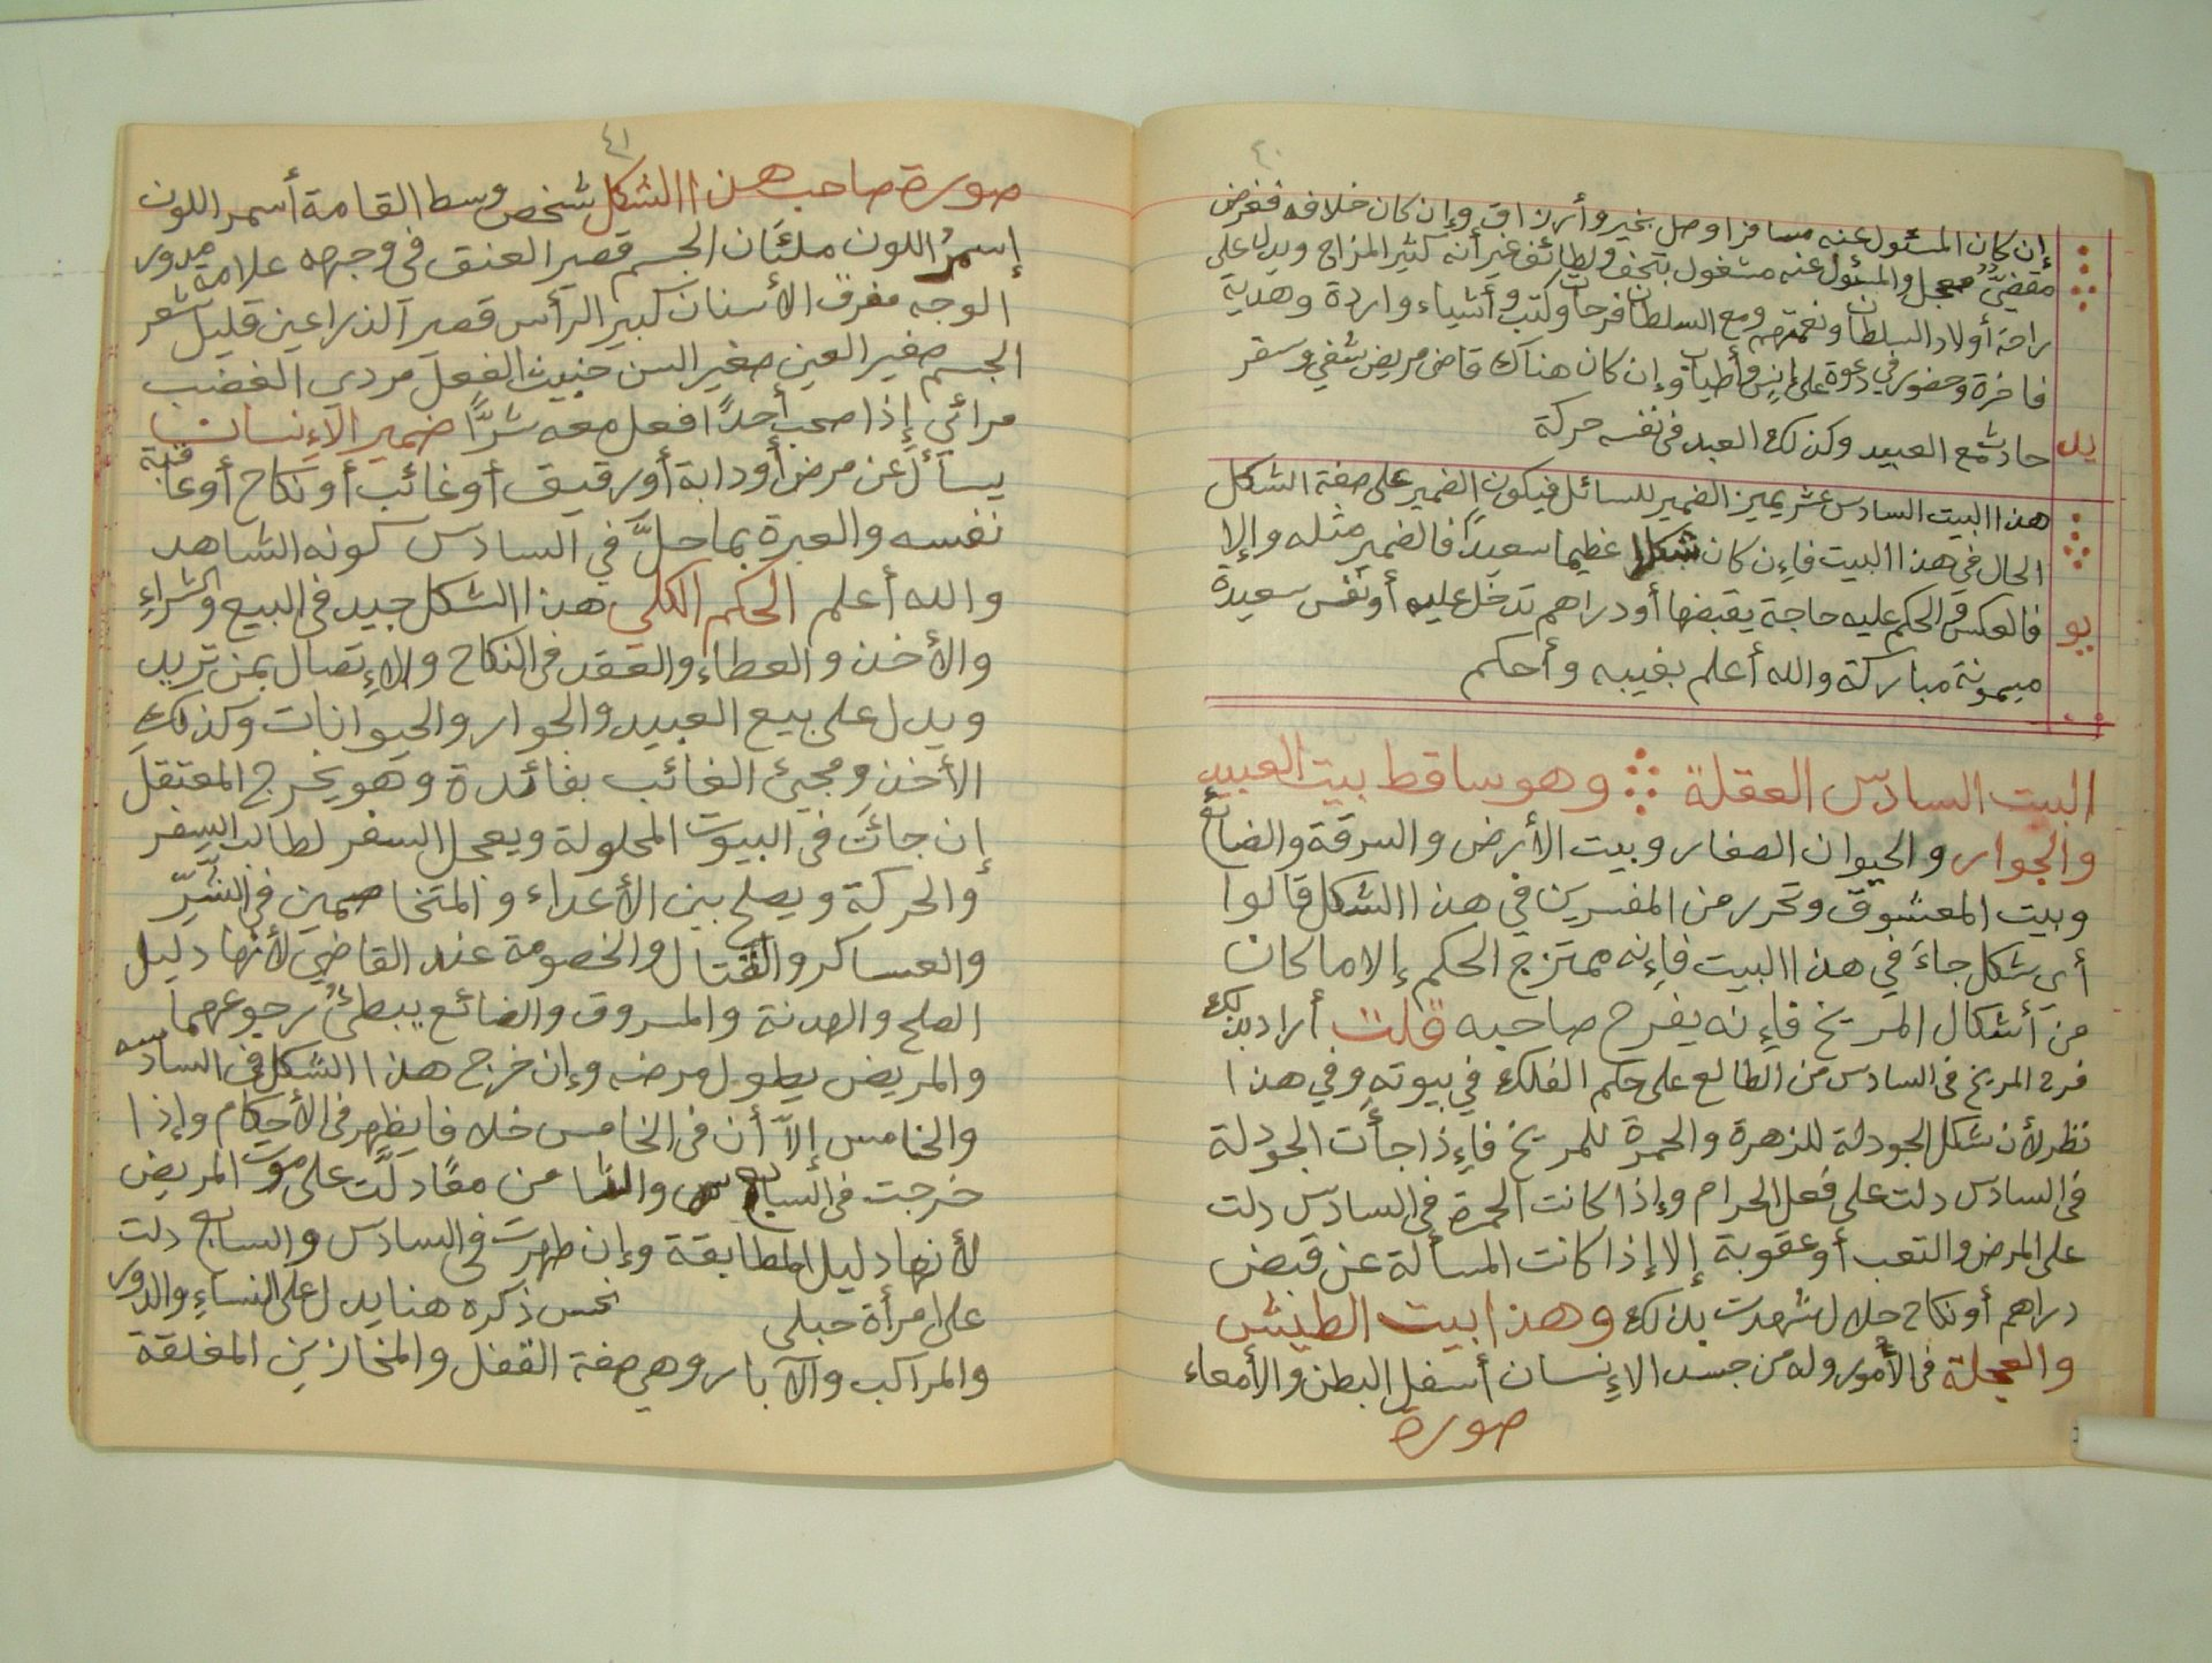 ٤٠
إن كان المسئول عنه مسافرا وصل بخير وأرزاق وإن كان خلافه فغرض
مقضيٌّ معجل والمسئول عنه مشغول بتحف ولطائف غير أنه كثير المزاج ويدل على
راحة أولاد السلطان ونعمتهم ومع السلطان فرحات وكتب وأشياء واردة وهدية
فاخرة وحضور في دعوة على إنس وأطياب وإن كان هناك قاضى مريض شفي وسفر
يد
حادث مع العبيد وكذلك العبد فى نفسه حركة
هذا البيت السادس عشر يميز الضمير للسائل فيكون الضمير على صفة الشكل
الحال في هذا البيت فإن كان شكلا عظيما سعيداً فالضمير مثله وإلا
يو
فالعكس والحكم عليه حاجة يقبضها أو دراهم تدخل عليه أو نفس سعيدة
ميمونة مباركة والله أعلم بغيبه وأحكم
البيت السادس العقلة وهو ساقط بيت العبيد
والجوار والحيوان الصغار وبيت الأرض والسرقة والضائع
وبيت المعشوق وتحرر من المفسرين في هذا الشكل قالوا
أي شكل جاءَ في هذا البيت فإنه ممتزج الحكم إلا ما كان
من أشكال المريخ فإنه يفرح صاحبه قلت أراد بذلك
فرح المريخ فى السادس من الطالع على حكم الفلك في بيوته وفي هذا
نظر لأن شكل الجودلة للزهرة والحمرة للمريخ فإذا جأت الجودلة
فى السادس دلت على فعل الحرام وإذا كانت الحمرة فى السادس دلت
على المرض والتعب أو عقوبة إلا إذا كانت المسألة عن قبض
دراهم أو نكاح حلال شهدت بذلك وهذا بيت الطيش
والعجلة فى الأمور وله من جسد الإنسان أسفل البطن والأمعاء
صورة
٤١
صورة صاحب هذا الشكل شخص وسط القامة أسمر اللون
إسمرُ اللون ملئان الجسم قصير العنق فى وجهه علامة مدور
الوجه مفرق الأسنان كبير الرأس قصير الذراعين قليل شعر
الجسم صغير العين صغير السن خبيث الفعل مردي الغضب
مرائي إذا صحب أحدًا فعل معه شرًّا ضمير الإنسان
يسأل عن مرض أو دابة أو رقيق أو غائب أو نكاح أو عاقبة
نفسه والعبرة بما حلَّ في السادس كونه الشاهد
والله أعلم الحكم الكلي هذا الشكل جيد فى البيع والشراءِ
والأخذ والعطاء والعقد فى النكاح والإتصال بمن تريد
ويدل على بيع العبيد والجوار والحيوانات وكذلك
الأخذ ومجيئ الغائب بفائدة وهو يخرج المعتقل
إن جائت فى البيوت المحلولة ويعجل السفر لطالب السفر
والحركة ويصلح بين الأعداء والمتخاصمين في الشَّرِّ
والعساكر والقتال والخصومة عند القاضي لأنها دليل
الصلح والهدنة والمسروق والضائع يبطئُ رجوعهما
والمريض يطول مرضه وإن خرج هذا الشكل فى السادسه
والخامس إلاَّ أن فى الخامس خلافا يظهر فى الأحكام وإذا
خرجت فى السابع والثامن معًا دلَّت على موت المريض
لأنها دليل المطابقة وإن ظهرت فى السادس والسابع دلت
على امرأة حبلى نحس ذكره هنا يدل على النساءِ والدور
والمراكب والآبار وهي صفة القفل والمخازين المغلقة